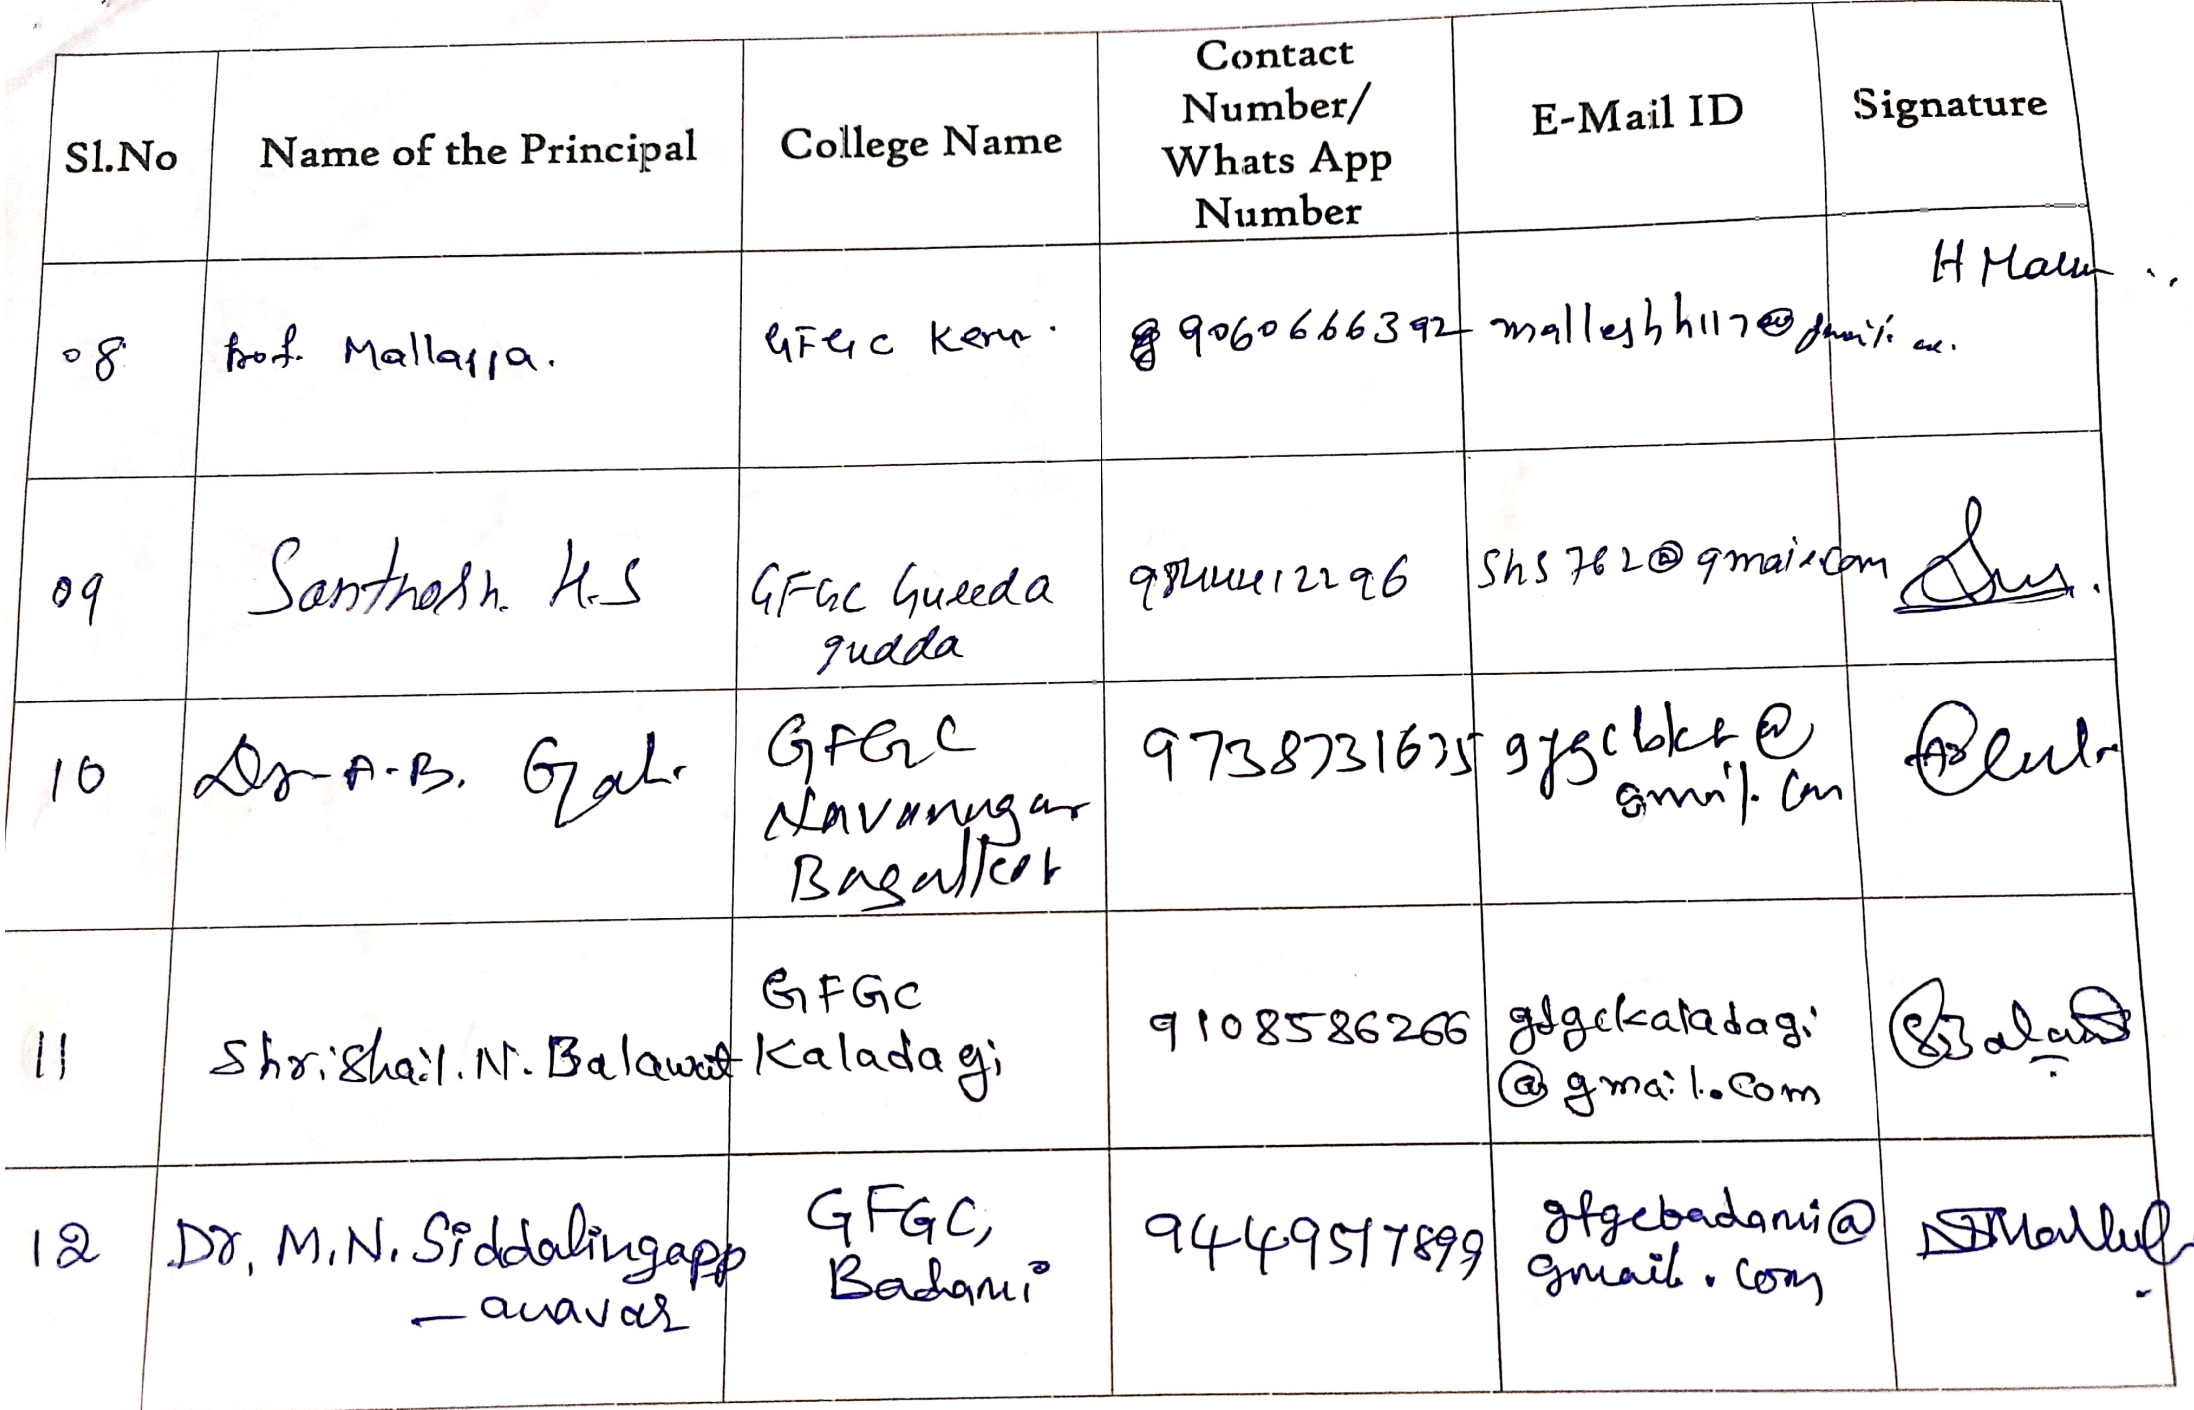 Sl.No
Name of the Principal
College Name
Contact
Number/
Whats App
Number
E-Mail ID
Signature
08
Prof. Mallappa.
GFGC Kerur.
9060666392
malleshh117@gmail.com
H Mallu
09
Santhosh. H.S
GFGC Guleeda
gudda
9844412296
shs762@gmail.com
10
Dr A.B.
GFGC
Navanagar
Bagalkot
9738731635
gfgcbkt@
gmail.com
11
Shrishail. N. Balawat
GFGC
Kaladagi
9108586266
gfgckaladagi
@gmail.com
12
Dr, M.N. Siddalingapp
- anavar
GFGC,
Badami
9449517899
gfgcbadami@
gmail.com